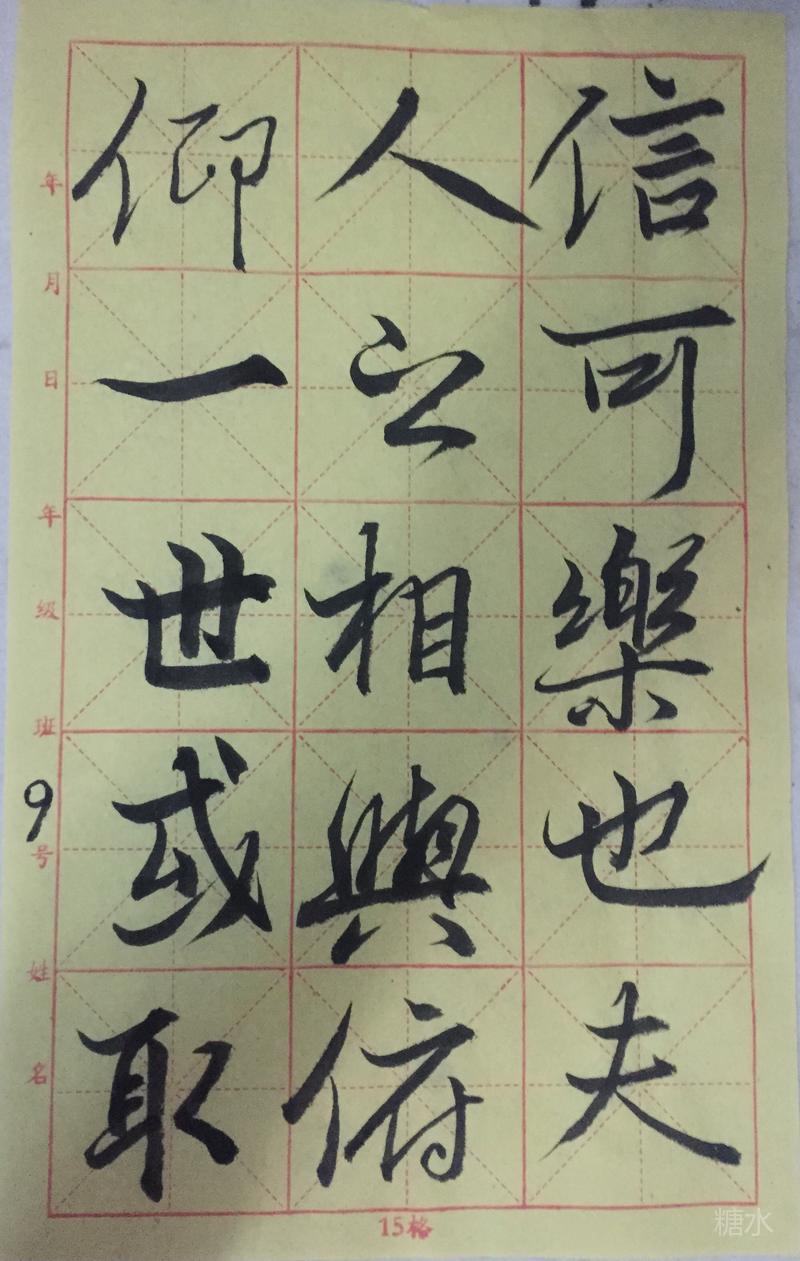 信可樂也夫
人之相與俯
仰一世或取
年月日
年級班
9号
姓名
15格
糖水